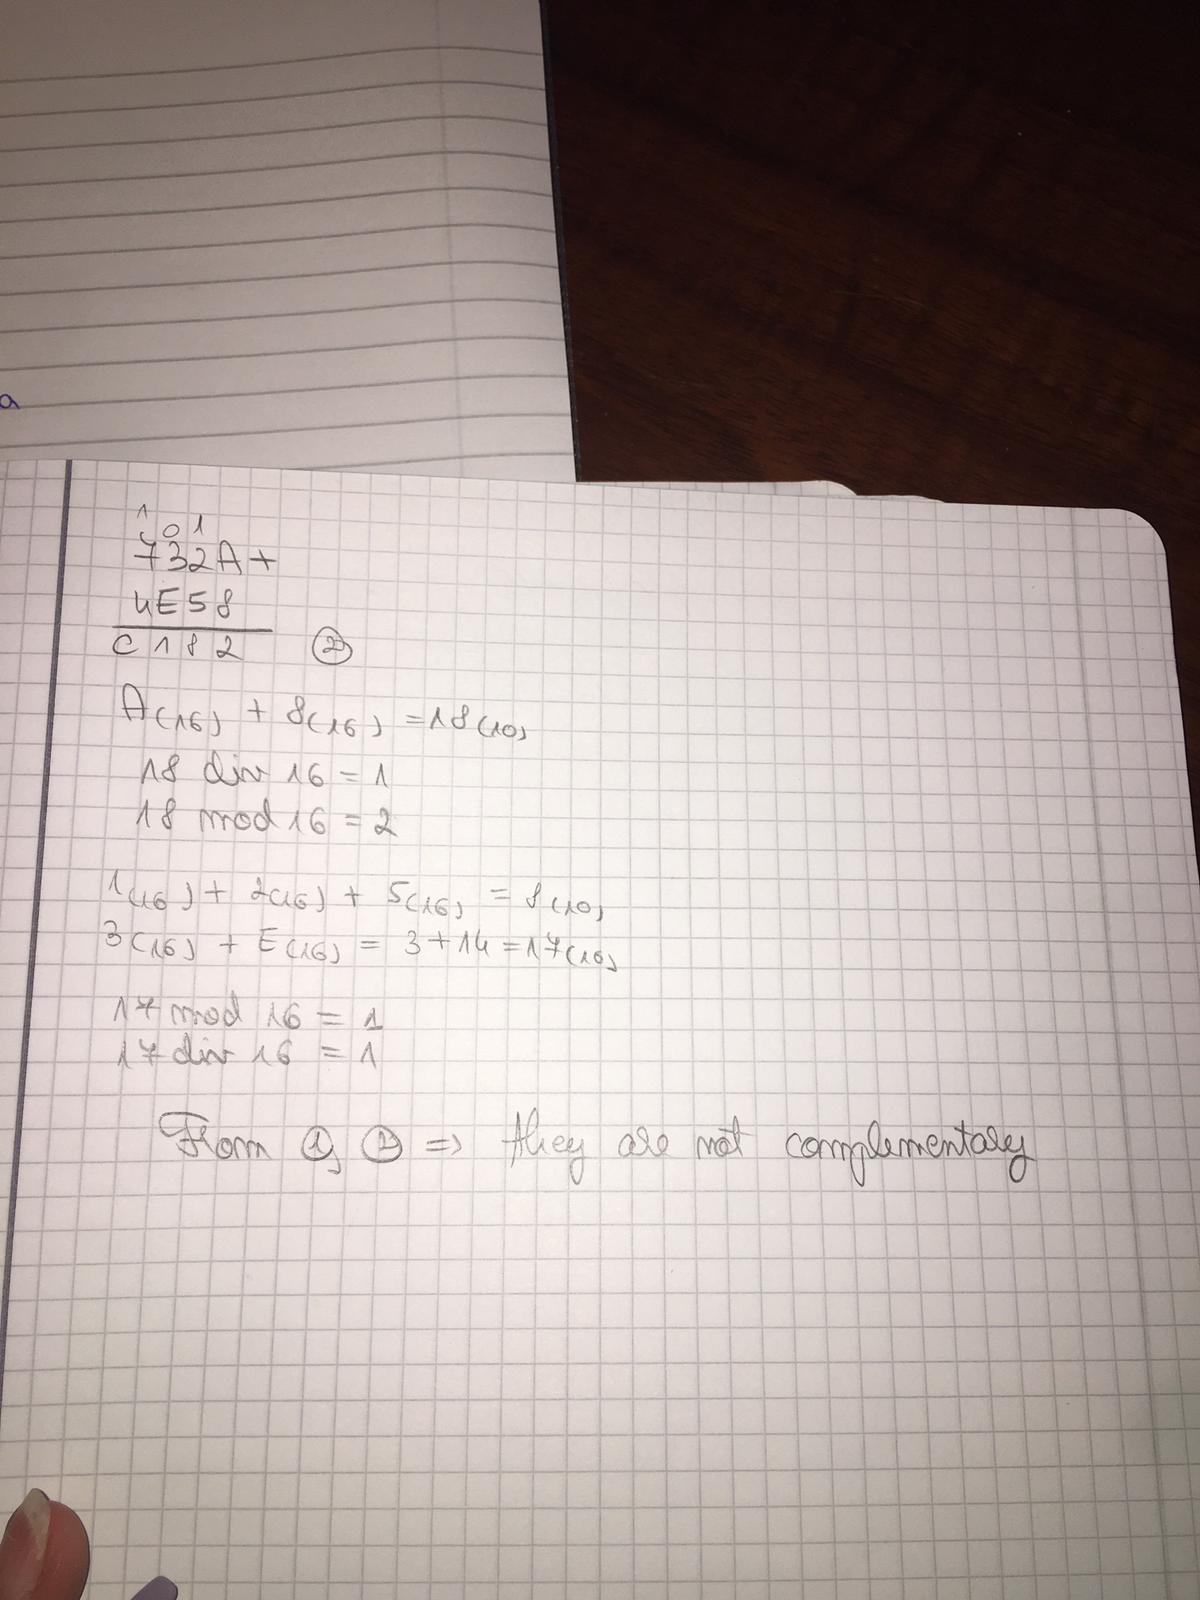 a
1
0 1
732A+
4E58
C182 ②
A(16) + 8(16) = 18(10)
18 div 16 = 1
18 mod 16 = 2
1(16) + 2(16) + 5(16) = 8(10)
3(16) + E(16) = 3 + 14 = 17(10)
17 mod 16 = 1
17 div 16 = 1
From ①, ② => they are not complementary